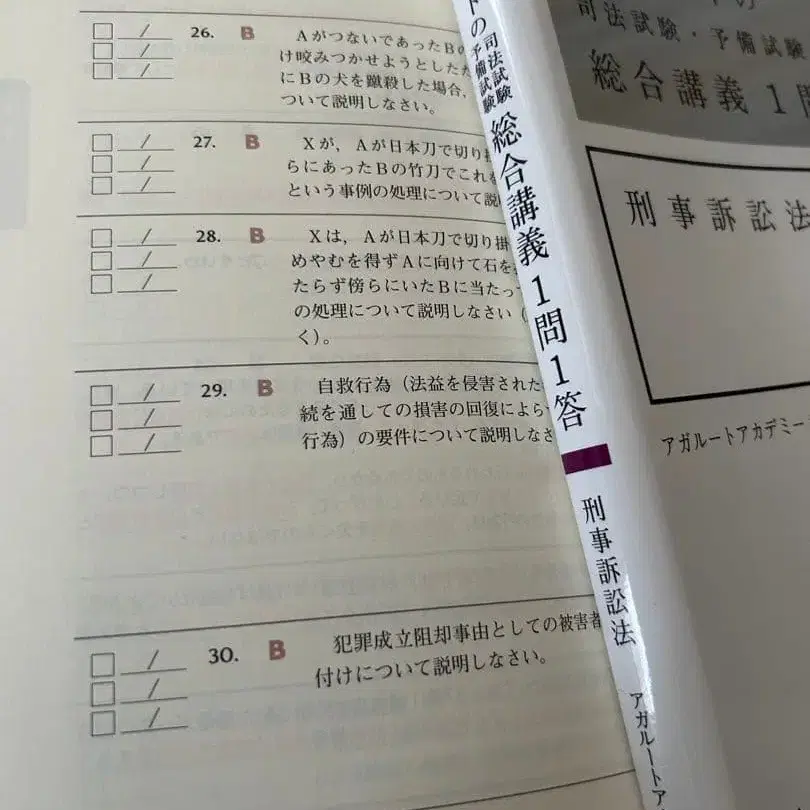 26. B Aがつないであった Bの
け咬みつかせようとした
にBの犬を蹴殺した場合,
ついて説明しなさい。
27. B Xが, Aが日本刀で切り掛
らにあったBの竹刀でこれを
という事例の処理について説
28. B Xは, Aが日本刀で切り掛
めやむを得ずAに向けて石を
たらず傍らにいたBに当たっ
の処理について説明しなさい(
く)。
29. B 自救行為(法益を侵害された
続を通しての損害の回復によら
行為)の要件について説明しなさ
30. B 犯罪成立阻却事由としての被害者
付けについて説明しなさい。
トの 司法試験 予備試験 総合講義1問1答 刑事訴訟法 アガルートア
司法試験・予備試験
総合講義1問
刑事訴訟法
アガルートアカデミー